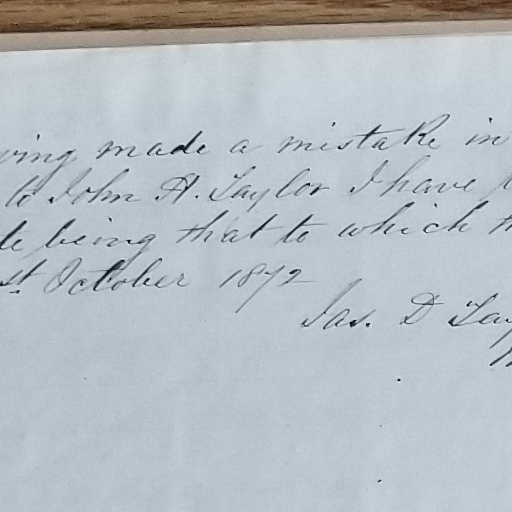 ving made a mistake in
to John A. Taylor I have
te being that to which th
st October 1872
Jas. D Tay